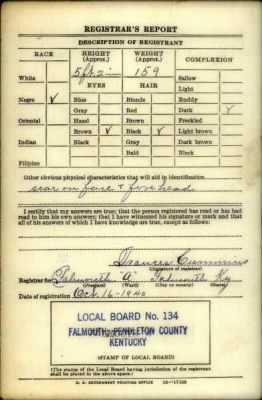 REGISTRAR'S REPORT
DESCRIPTION OF REGISTRANT
RACE HEIGHT (Approx.) WEIGHT (Approx.) COMPLEXION
5 ft. 2 159
White Sallow
EYES HAIR Light
Negro ✓ Blue Blonde Ruddy
Gray Red Dark ✓
Oriental Hazel Brown Freckled
Brown ✓ Black ✓ Light brown
Indian Black Gray Dark brown
Bald Black
Filipino
Other obvious physical characteristics that will aid in identification
scar on face & forehead
I certify that my answers are true; that the person registered has read or has had
read to him his own answers; that I have witnessed his signature or mark and that
all of his answers of which I have knowledge are true, except as follows:
Frances Cummins
(Signature of registrar)
Registrar for Falmouth "A" Falmouth Ky
(Precinct) (Ward) (City or county) (State)
Date of registration Oct. 16-1940
LOCAL BOARD No. 134
FALMOUTH, PENDLETON COUNTY
KENTUCKY
(STAMP OF LOCAL BOARD)
(The stamp of the Local Board having jurisdiction of the registrant
shall be placed in the above space.)
U. S. GOVERNMENT PRINTING OFFICE